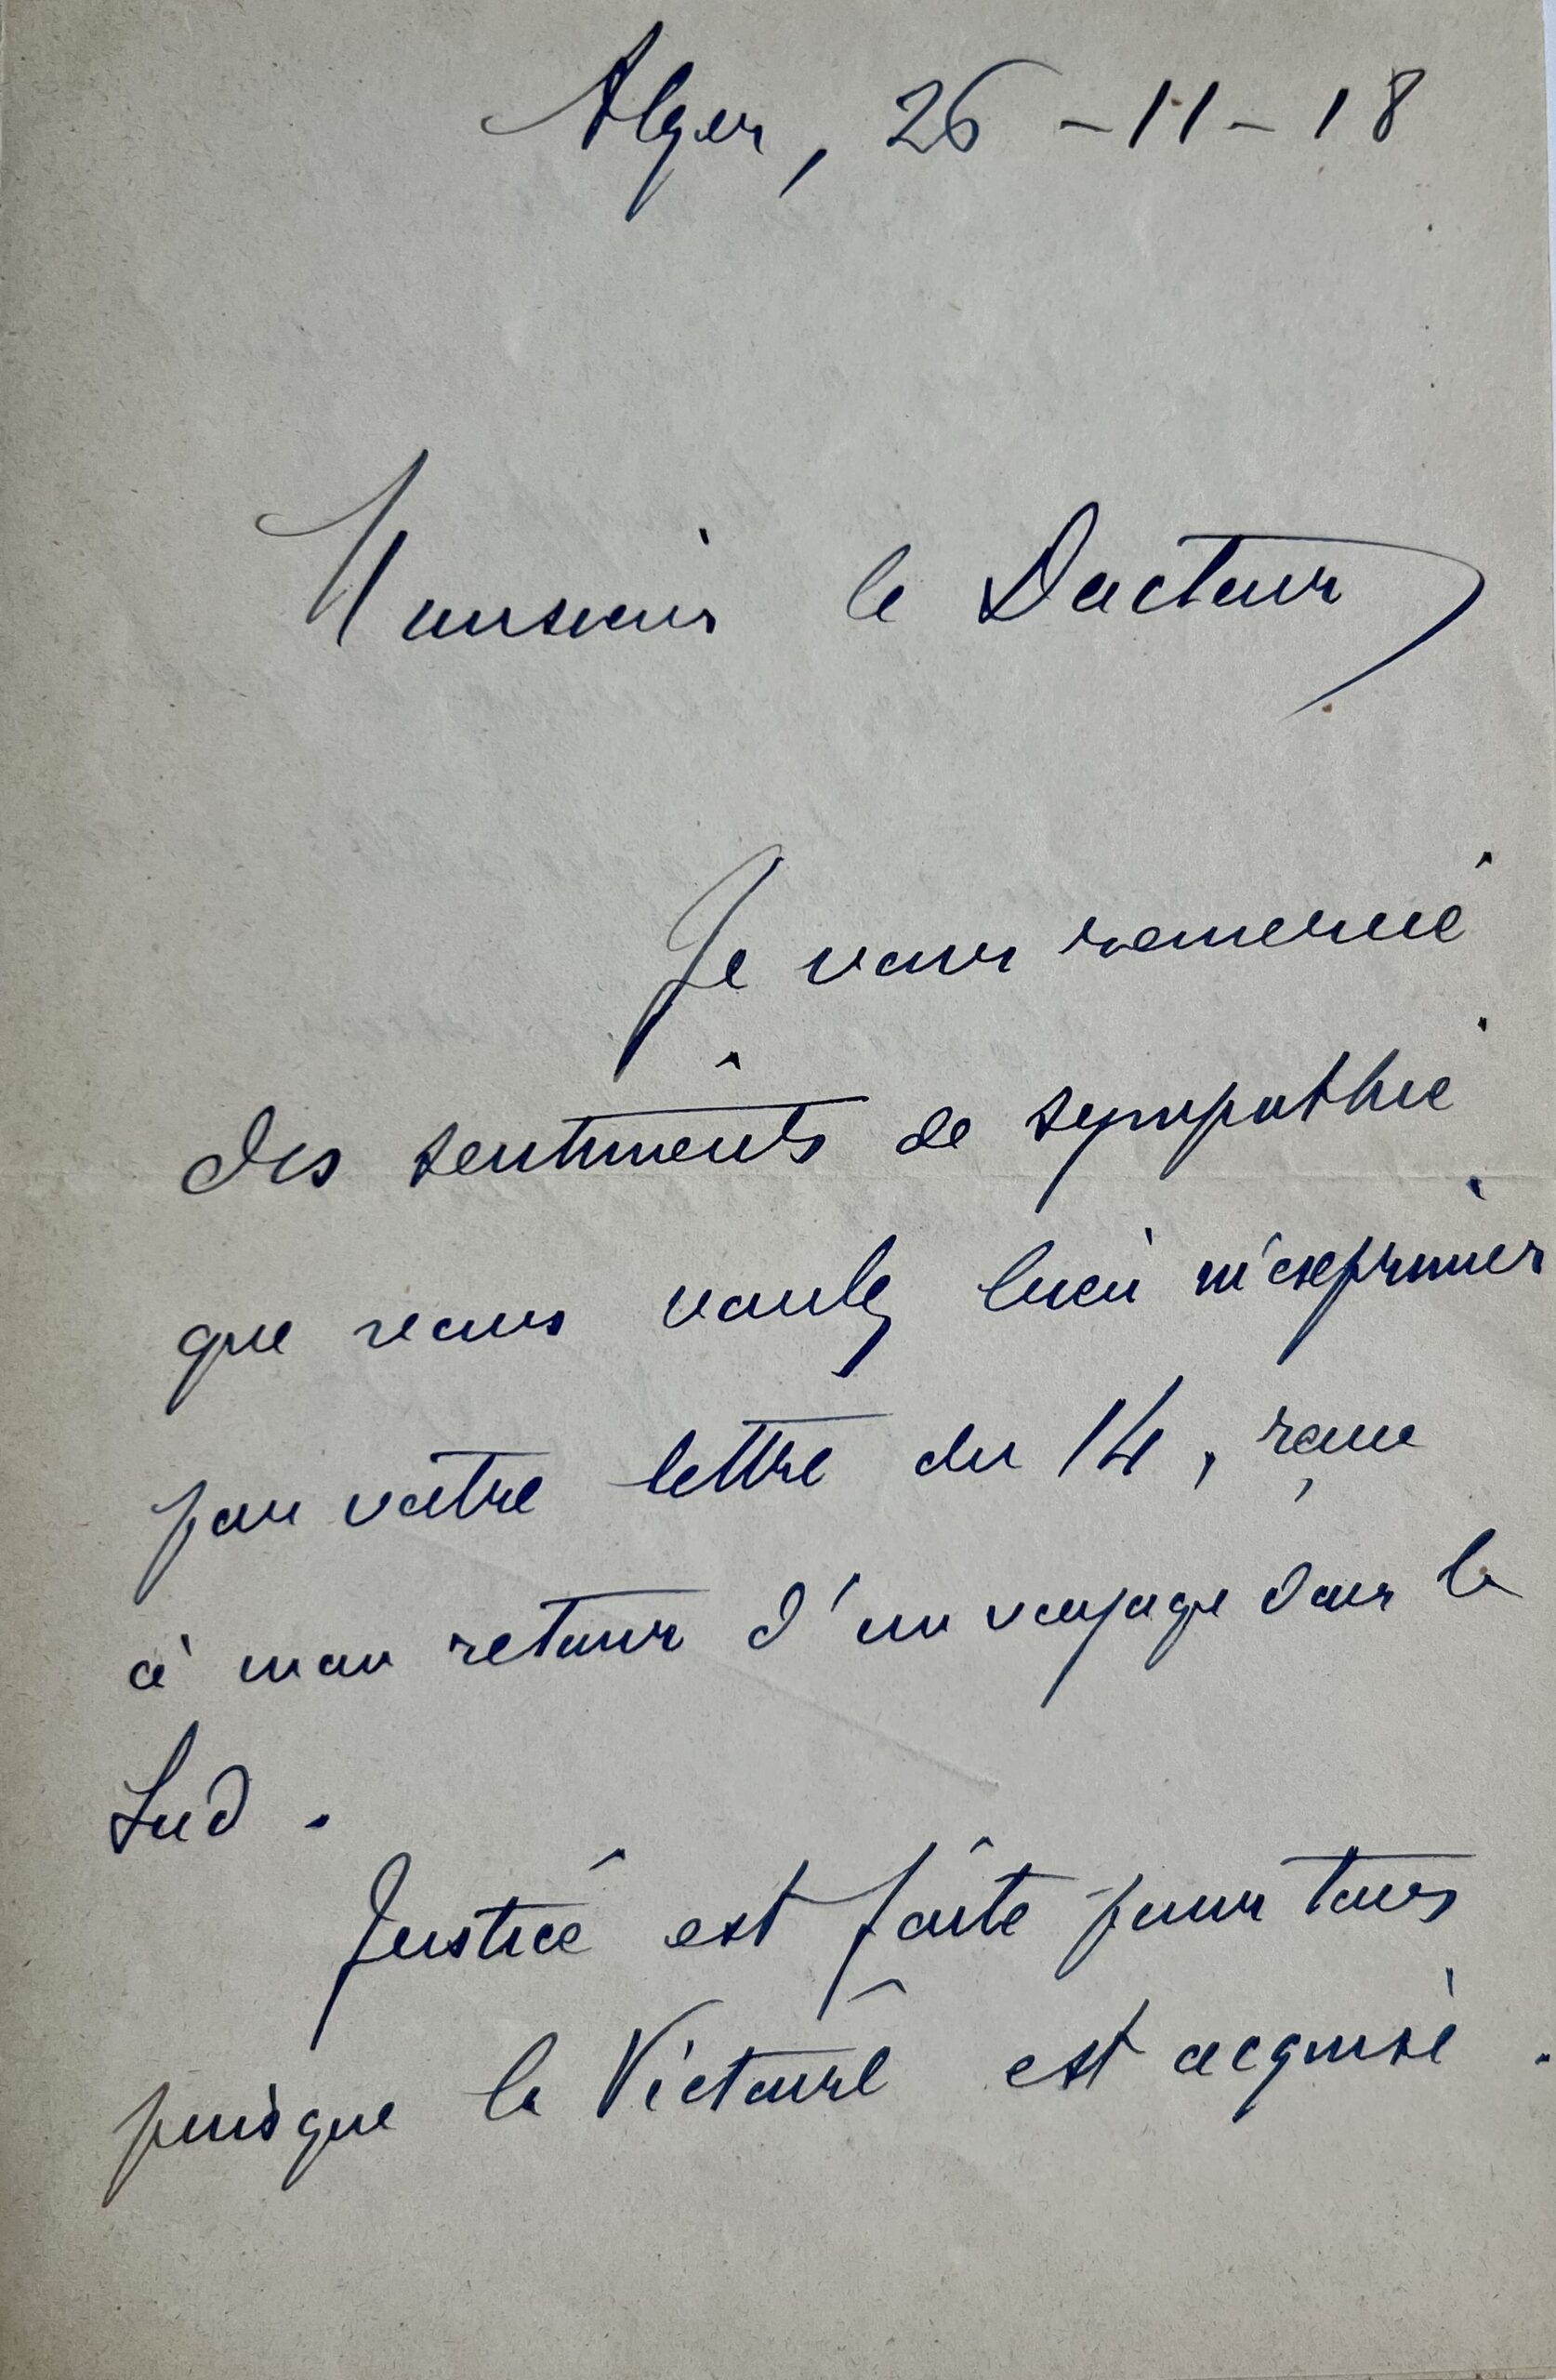 Alger, 26 - 11 - 18
Monsieur le Docteur
Je vous remercie
des sentiments de sympathie
que vous voulez bien m'exprimer
par votre lettre du 14, reçue
à mon retour d'un voyage dans le
Sud.
Justice est faite pour tous
puisque la Victoire est acquise.